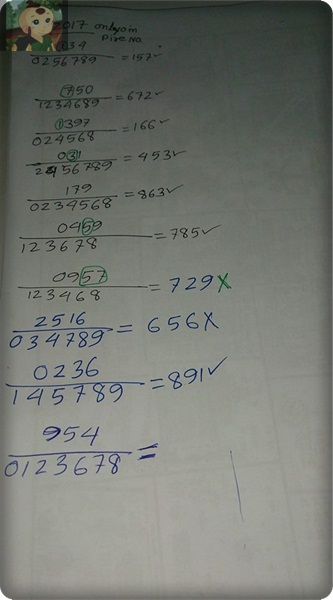 2017 only vip
034
0256789 = 157✓
750
1234689 = 672✓
1397
024568 = 166✓
031
2456789 = 453✓
179
0234568 = 863✓
0459
123678 = 785✓
0957
123468 = 729X
2516
034789 = 656X
0236
145789 = 891✓
954
0123678 =